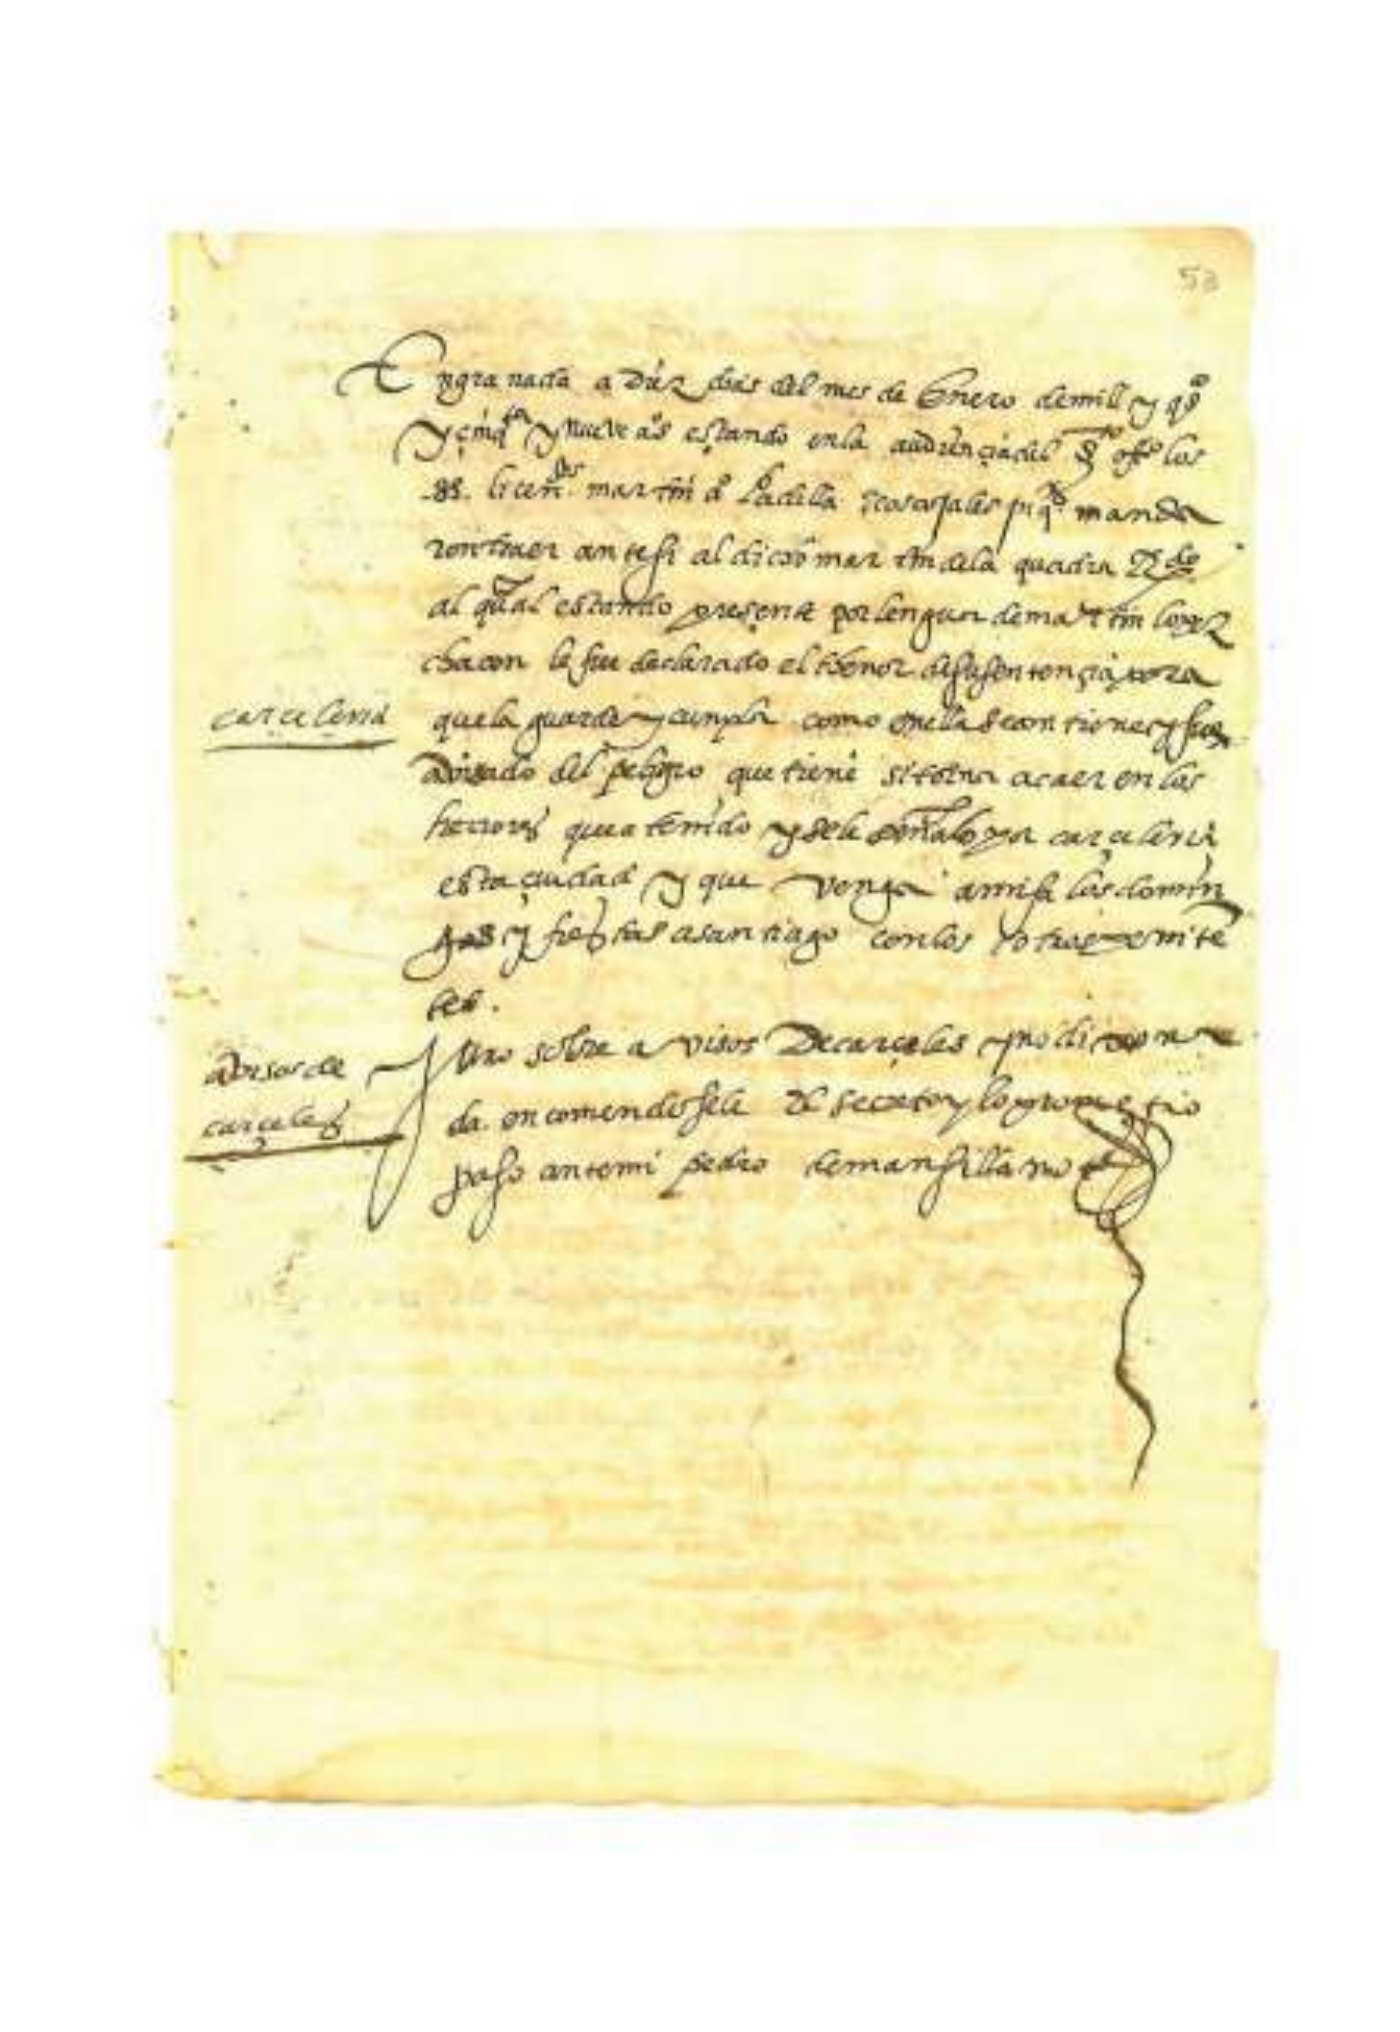 53
En granada a Diez dias del mes de Enero de mill y qºs
y cinqta y nueve aºs estando en la audiençia del Sto offº los
ss. licendos martin aº Padilla mandа
ron traer ante si al dicho martin de la quadra
al qual estando presente por lengua de martin lopez
chacon le fue declarado el thenor de su sentençia para
carçeleria
que la guarde y cunpla como en ella se contiene y fue
avisado del peligro que tiene si torna a caer en los
herrores que a tenido y se le señalo por carçeleria
esta çiudad y que venga a misa los domin
gos y fiestas a santiago con los otros peniten
tes.
avisos de
carçeles
Juro sobre avisos De carçeles y no dixo na
da. encomendosele el secreto y lo prometio
paso ante mi pedro de mansilla notº